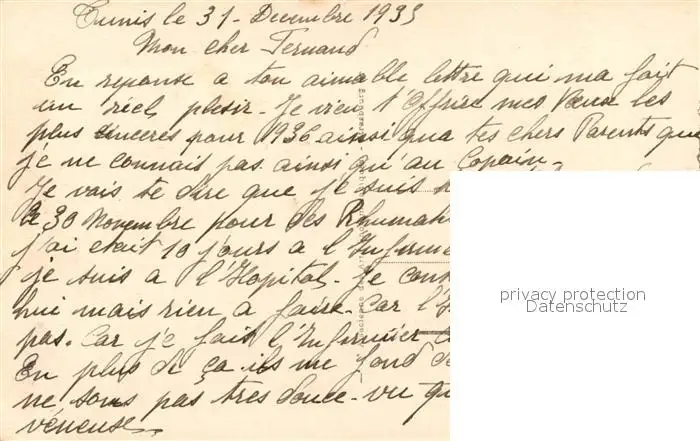 Tunis le 31 - Decembre 1935
Mon cher Fernand
En reponse a ton aimable lettre qui ma fait
un réel plesir - Je vien t'offrire mes Vœux les
plus sinceres pour 1936 ainsi qua tes chers Parents que
je ne connais pas ainsi qu'au Copain -
Je vais te dire que je suis
le 30 Novembre pour des Rhumat
j'ai etait 10 jours a l'Infirme
je suis a l'Hopital. Je con
hui mais rien a faire. Car l'
pas. Car je fais l'Infirmier
En plus de ça ils me fond de
ne sons pas tres douce - vu qu
véneuse
privacy protection
Datenschutz